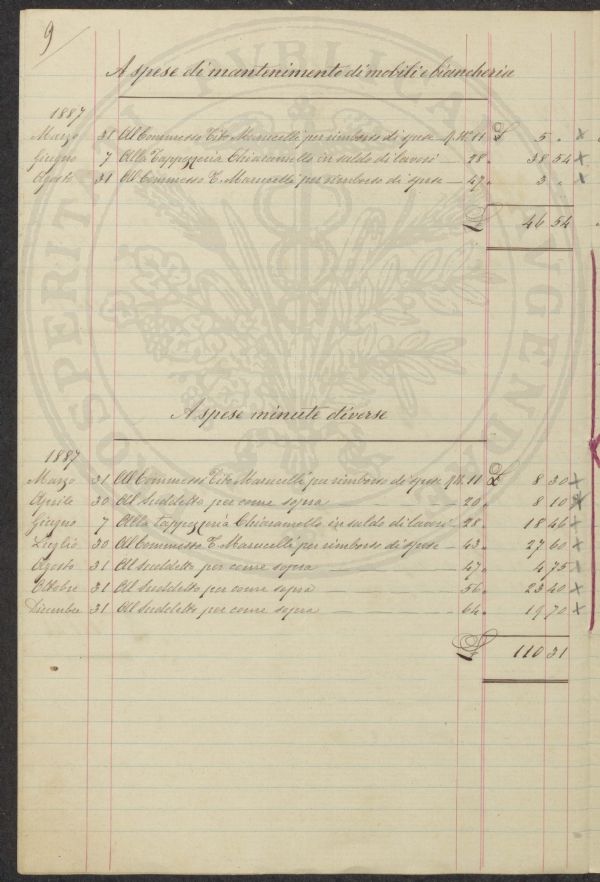 9
A spese di mantenimento di mobili e biancheria
1887
Marzo 31 Al Commesso Tito Marucelli per rimborso di spese 11 £ 5 „ x
Giugno 7 Alla Tappezzeria Chiaramello in saldo di lavori — 28 „ 38 54 x
Agosto 31 Al Commesso T. Marucelli per rimborso di spese — 47 „ 3 „ x
£ 46 54
A spese minute diverse
1887
Marzo 31 Al Commesso Tito Marucelli per rimborso di spese 11 £ 8 30 x
Aprile 30 Al Suddetto per come sopra — 20 „ 8 10 x
Giugno 7 Alla Tappezzeria Chiaramello in saldo di lavori — 28 „ 18 46 x
Luglio 30 Al Commesso T. Marucelli per rimborso di spese — 43 „ 27 60 x
Agosto 31 Al Suddetto per come sopra — 47 „ 4 75 x
Ottobre 31 Al Suddetto per come sopra — 56 „ 23 40 x
Dicembre 31 Al Suddetto per come sopra — 64 „ 19 70 x
£ 110 31